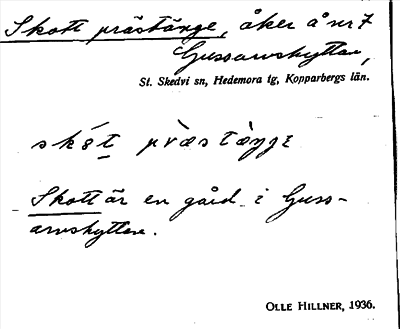 Skott prästänge, åker å nr 7
Gussarvshyttan,
St. Skedvi sn, Hedemora tg, Kopparbergs län.
skót pr̀æstæ̀ŋge
Skott är en gård i Guss-
arvshyttan.
OLLE HILLNER, 1936.